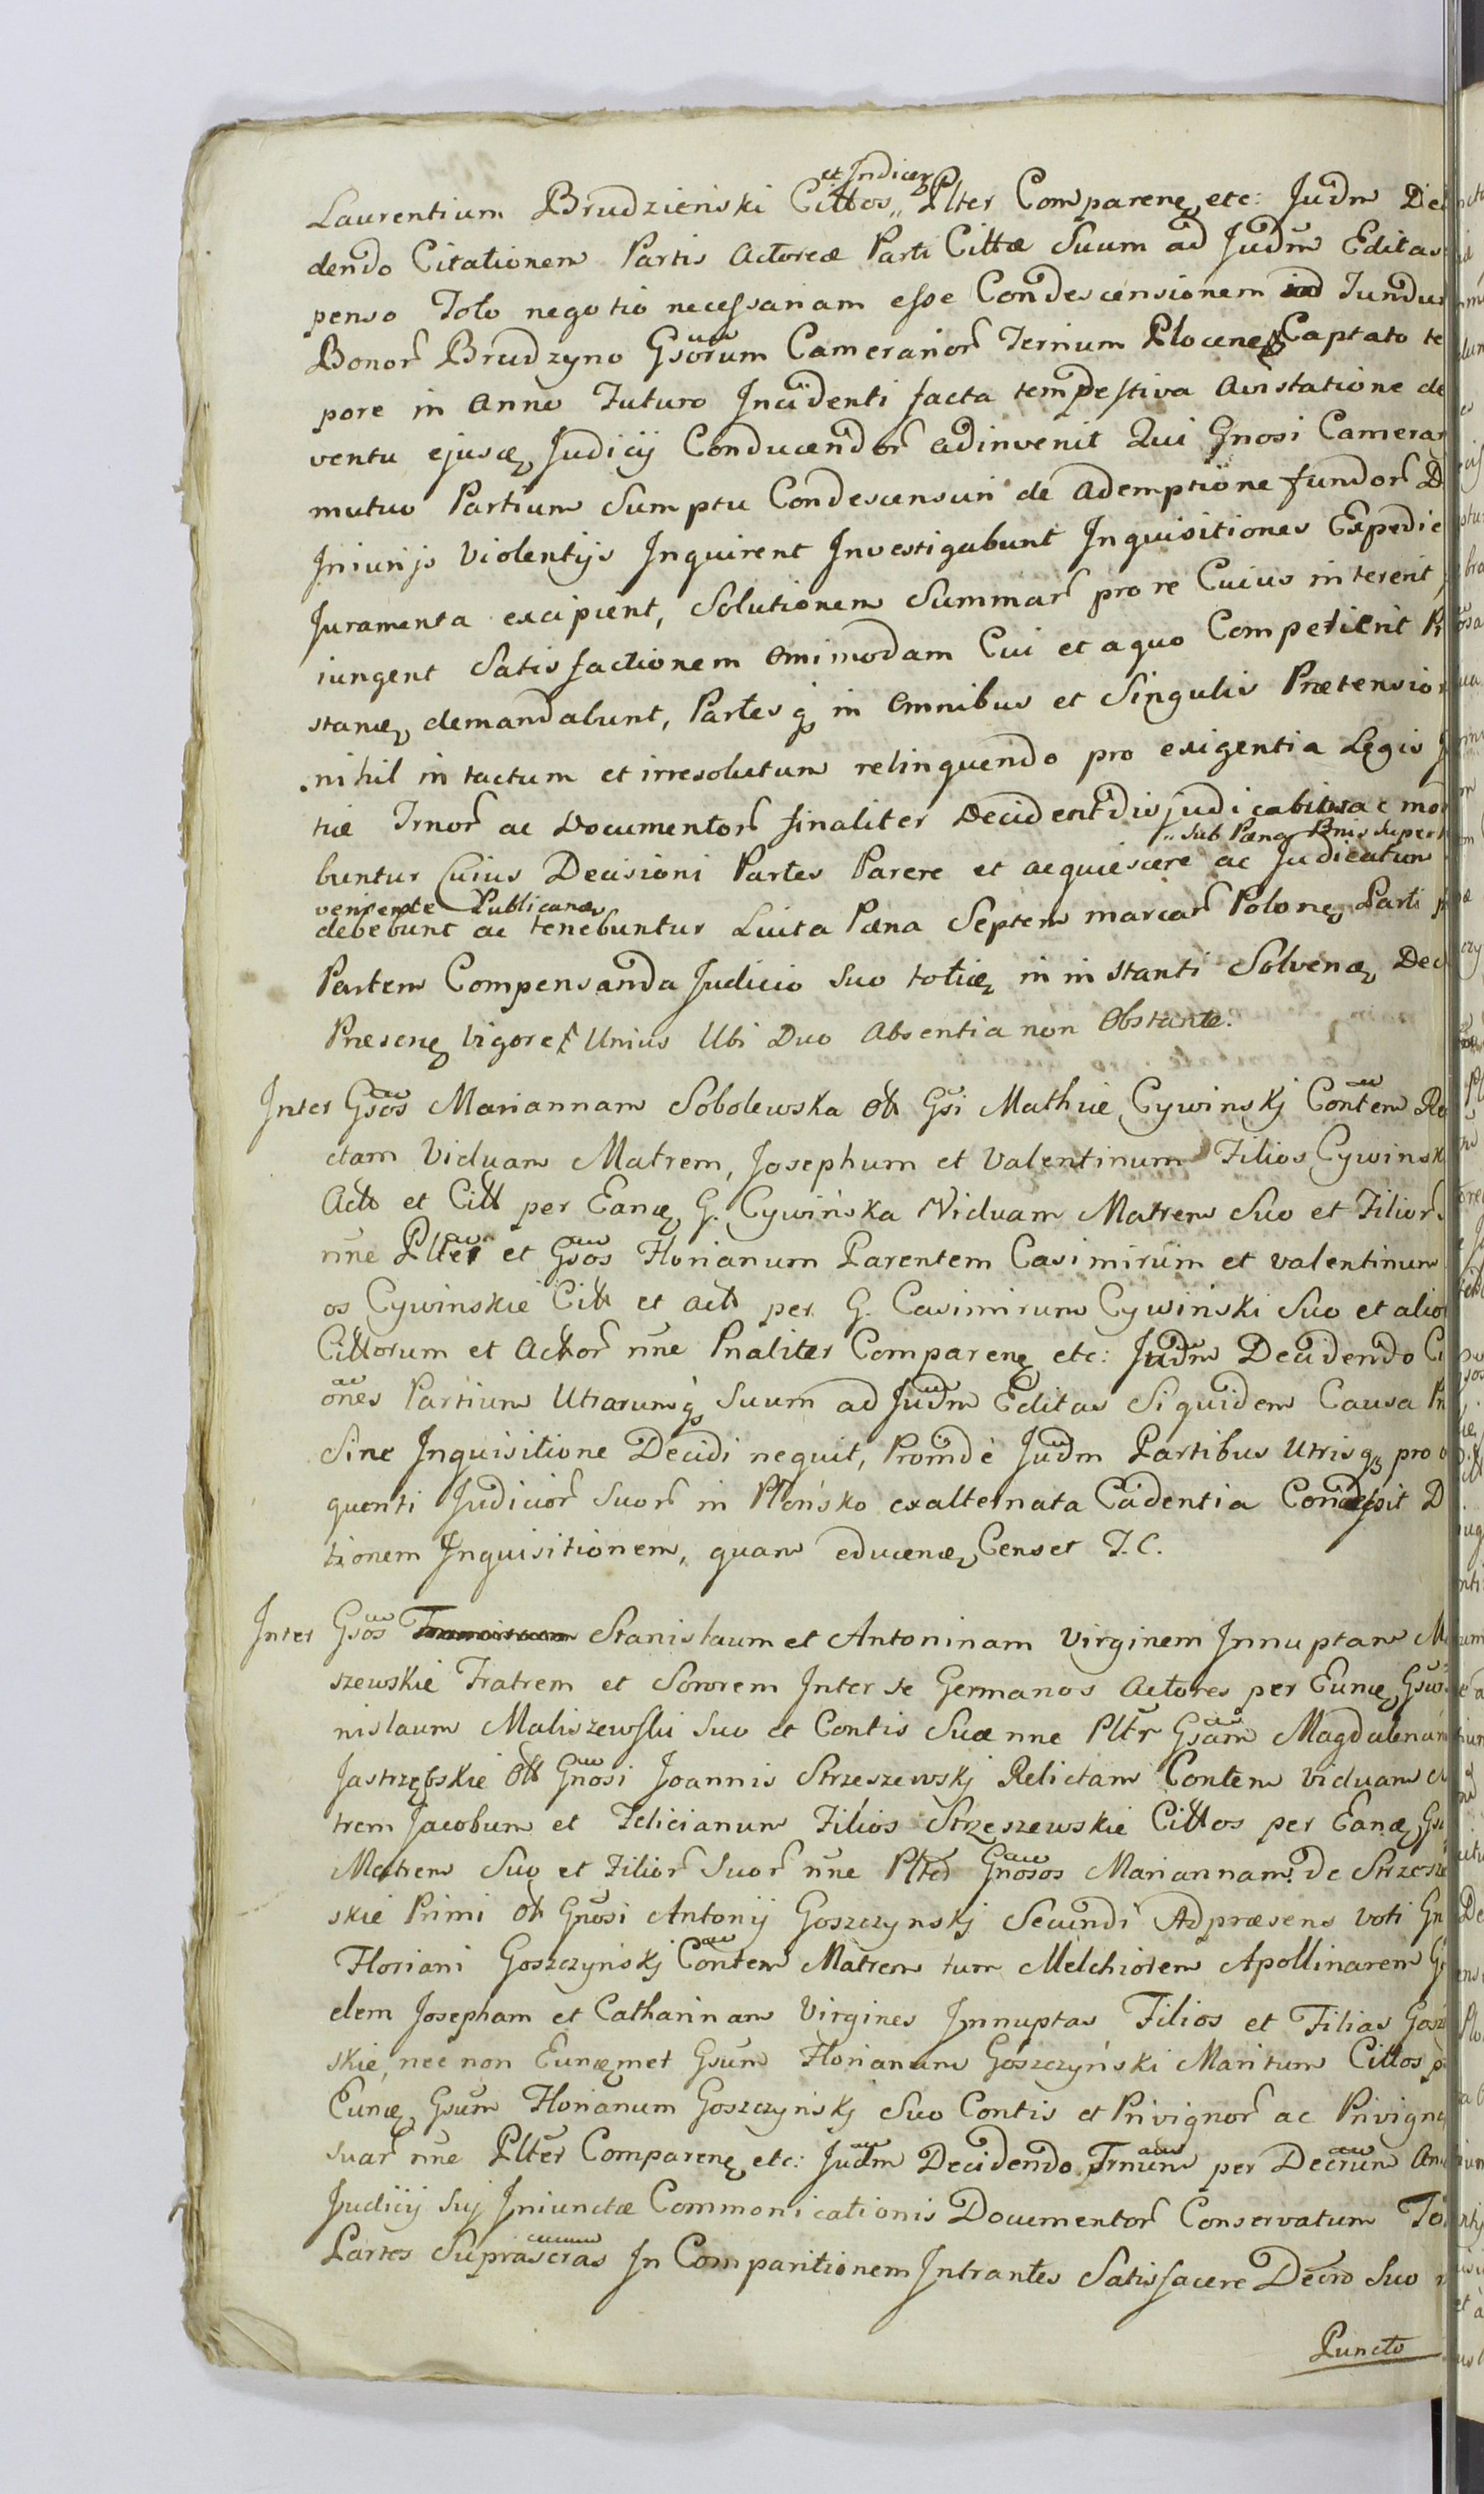 Laurentium Brudzienski Cittos „ et Indices Plter Comparenꝫ etc: Judm Dec
dendo Citationem Partis Actoreæ Parti Cittæ Suum ad Judm̄ Editas
penso Toto negotio necessariam esse Condescensionem ad Fundu
Bonor Brudzyno Gsorum Camerarior Ternium Plocenꝫ Captato te
pore in Anno Futuro Incidenti facta tempestiva Avistatione de
ventu ejusꝫ Judicij Conducendor adinvenit Qui Gnosi Camera
mutuo Partium Sumptu Condescensuri de Ademptione fundor D
Iniurijs Violentijs Inquirent Investigabunt Inquisitiones Expedie
Juramenta excipient, Solutionem Summar pro re Cuius intererit
iungent Satisfactionem Omnimodam Cui et a quo Competierit
stanꝫ demandabunt, Partes qꝫ in Omnibus et Singulis Prætensio
nihil intactum et irresolutum relinquendo pro exigentia Legis
tiæ Trnor ac Documentor finaliter Decident dis judicabunt ac mo
buntur Cuius Decisioni Partes Parere et acquiescere ac Judicatum „ sub Pæna Pnis super
veniente Publicanꝫ
debebunt ac tenebuntur Luita Pæna Septem marcar Polonꝫ Parti
Partem Compensanda Judicio Suo totieꝫ in instanti Solvenꝫ Dec
Præsenꝫ vigore Unius Ubi Duo Absentia non Obstante.
Inter Gsos Mariannam Sobolewska Olt Gsi Mathiæ Cywinskj Contem Re
ctam Viduam Matrem, Josephum et Valentinum Filios Cywinsk
Actt et Citt per Eanꝫ G. Cywińska Viduam Matrem Suo et Filior
nn̄e Plter et Gsos Florianum Parentem Casimirum et Valentinum
os Cywinskie Citt et Actt per G. Casimirum Cywiński Suo et alio
Cittorum et Actor nn̄e Pnaliter Comparenꝫ etc: Judm̄ Decidendo C
ones Partium Utrarumqꝫ Suum ad Judm Editas Siquidem Causa
Sine Inquisitione Decidi nequit, Proinde Judm Partibus Utrisqꝫ pro
quenti Judicior Suor in Płońsko ex alternata Cadentia D
tionem Inquisitionem, quam educenꝫ Censet T.C.
Inter Gsos Stanislaum et Antoninam Virginem Innuptam M
szewskie Fratrem et Sororem Inter se Germanos Actores per Eunꝫ Gsu
nislaum Maliszewski Suo et Contis Suæ nne Pltr Gsam Magdalenam
Jastrzębskie Olt Gnosi Joannis Strzeszewskj Relictam Contem Viduam
trem Jacobum et Felicianum Filios Strzeszewskie Cittos per Eanꝫ Gs
Matrem Suo et Filior Suor nn̄e Plter Gnosos Mariannam de Strzesze
skie Primi Olt Gnosi Antonij Goszczynskj Secundi Ad præsens Voti Gn
Floriani Goszczyńskj Contem Matrem tum Melchiorem Apollinarem G
elem Josepham et Catharinam Virgines Innuptas Filios et Filias Gosz
skie, nec non Eunꝫmet Gsum Florianum Goszczyński Maritum Cittos p
Eunꝫ Gsum Florianum Goszczyńskj Suo Contis et Privignor ac Privign
suar nn̄e Plter Comparenꝫ etc: Judm Decidendo Trnum per Decrum An
Judicij Sui Iniunctæ Commonicationis Documentor Conservatum
Partes Suprascras In Comparitionem Intrantes Satisfacere Decro Suo
Puncto